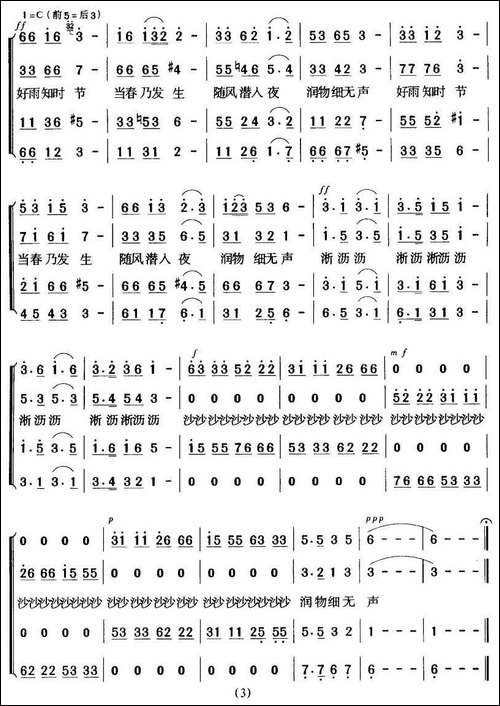 1=C(前5=后3)
ff
66 i6 3 - | i6 i32 2 - | 33 65 i.2 | 33 65 3 - | 33 23 3 -
33 66 7 - | 66 65 #4 - | 55 ♮46 5.4 | 33 65 3 - | 77 76 3 -
好雨知时 节 当春乃发 生 随风潜入 夜 润物细无 声 好雨知时 节
11 36 #5 - | 33 ♮53 6 - | 55 24 3.2 | 11 22 7 - | 55 52 #i -
66 12 3 - | 11 31 2 - | 11 26 1.7 | 66 67 #5 - | 33 66 6 -
ff
53 i5 3 - | 66 i3 2.3 | i23 53 6 - | 3.i 3.i | 3.5 i5 i -
7i 6i 7 - | 33 35 6.5 | 31 32 1 - | 1.5 3.5 | 1.5 35 5 -
当春乃发 生 随风潜入 夜 润物 细无 声 淅沥沥 淅沥淅沥沥
2i 66 #5 - | 66 66 #4.5 | 66 67 3 - | 5.3 5.3 | 5.3 i3 3 -
45 43 3 - | 61 17 6.1 | 31 25 6 - | 6.5 3.1 | 6.5 31 1 -
f
m f
3.6 i.6 | 3.2 36 1 - | 63 33 52 22 | 31 11 26 66 | 0 0 0 0
5.3 5.3 | 5.4 54 3 - | 0 0 0 0 | 0 0 0 0 | 52 22 31 11
淅沥沥 淅沥淅沥沥 沙沙沙沙沙沙沙沙 沙沙沙沙沙沙沙沙 沙沙沙沙沙沙沙沙
1.5 3.5 | 1.6 16 5 - | 15 55 76 66 | 53 33 62 22 | 0 0 0 0
3.1 3.1 | 3.4 32 1 - | 0 0 0 0 | 0 0 0 0 | 76 66 53 33
p
ppp
0 0 0 0 | 31 11 26 66 | 15 55 63 33 | 5.5 35 | 6 - - - | 6 - -
26 66 15 55 | 0 0 0 0 | 0 0 0 0 | 3.2 13 | 3 - - - | 3 - -
沙沙沙沙沙沙沙沙 沙沙沙沙沙沙沙沙 沙沙沙沙沙沙沙沙 润物细无 声
0 0 0 0 | 53 33 62 22 | 31 11 25 55 | 5.5 32 | 1 - - - | 1 - -
62 22 53 33 | 0 0 0 0 | 0 0 0 0 | 7.7 67 | 6 - - - | 6 - -
(3)